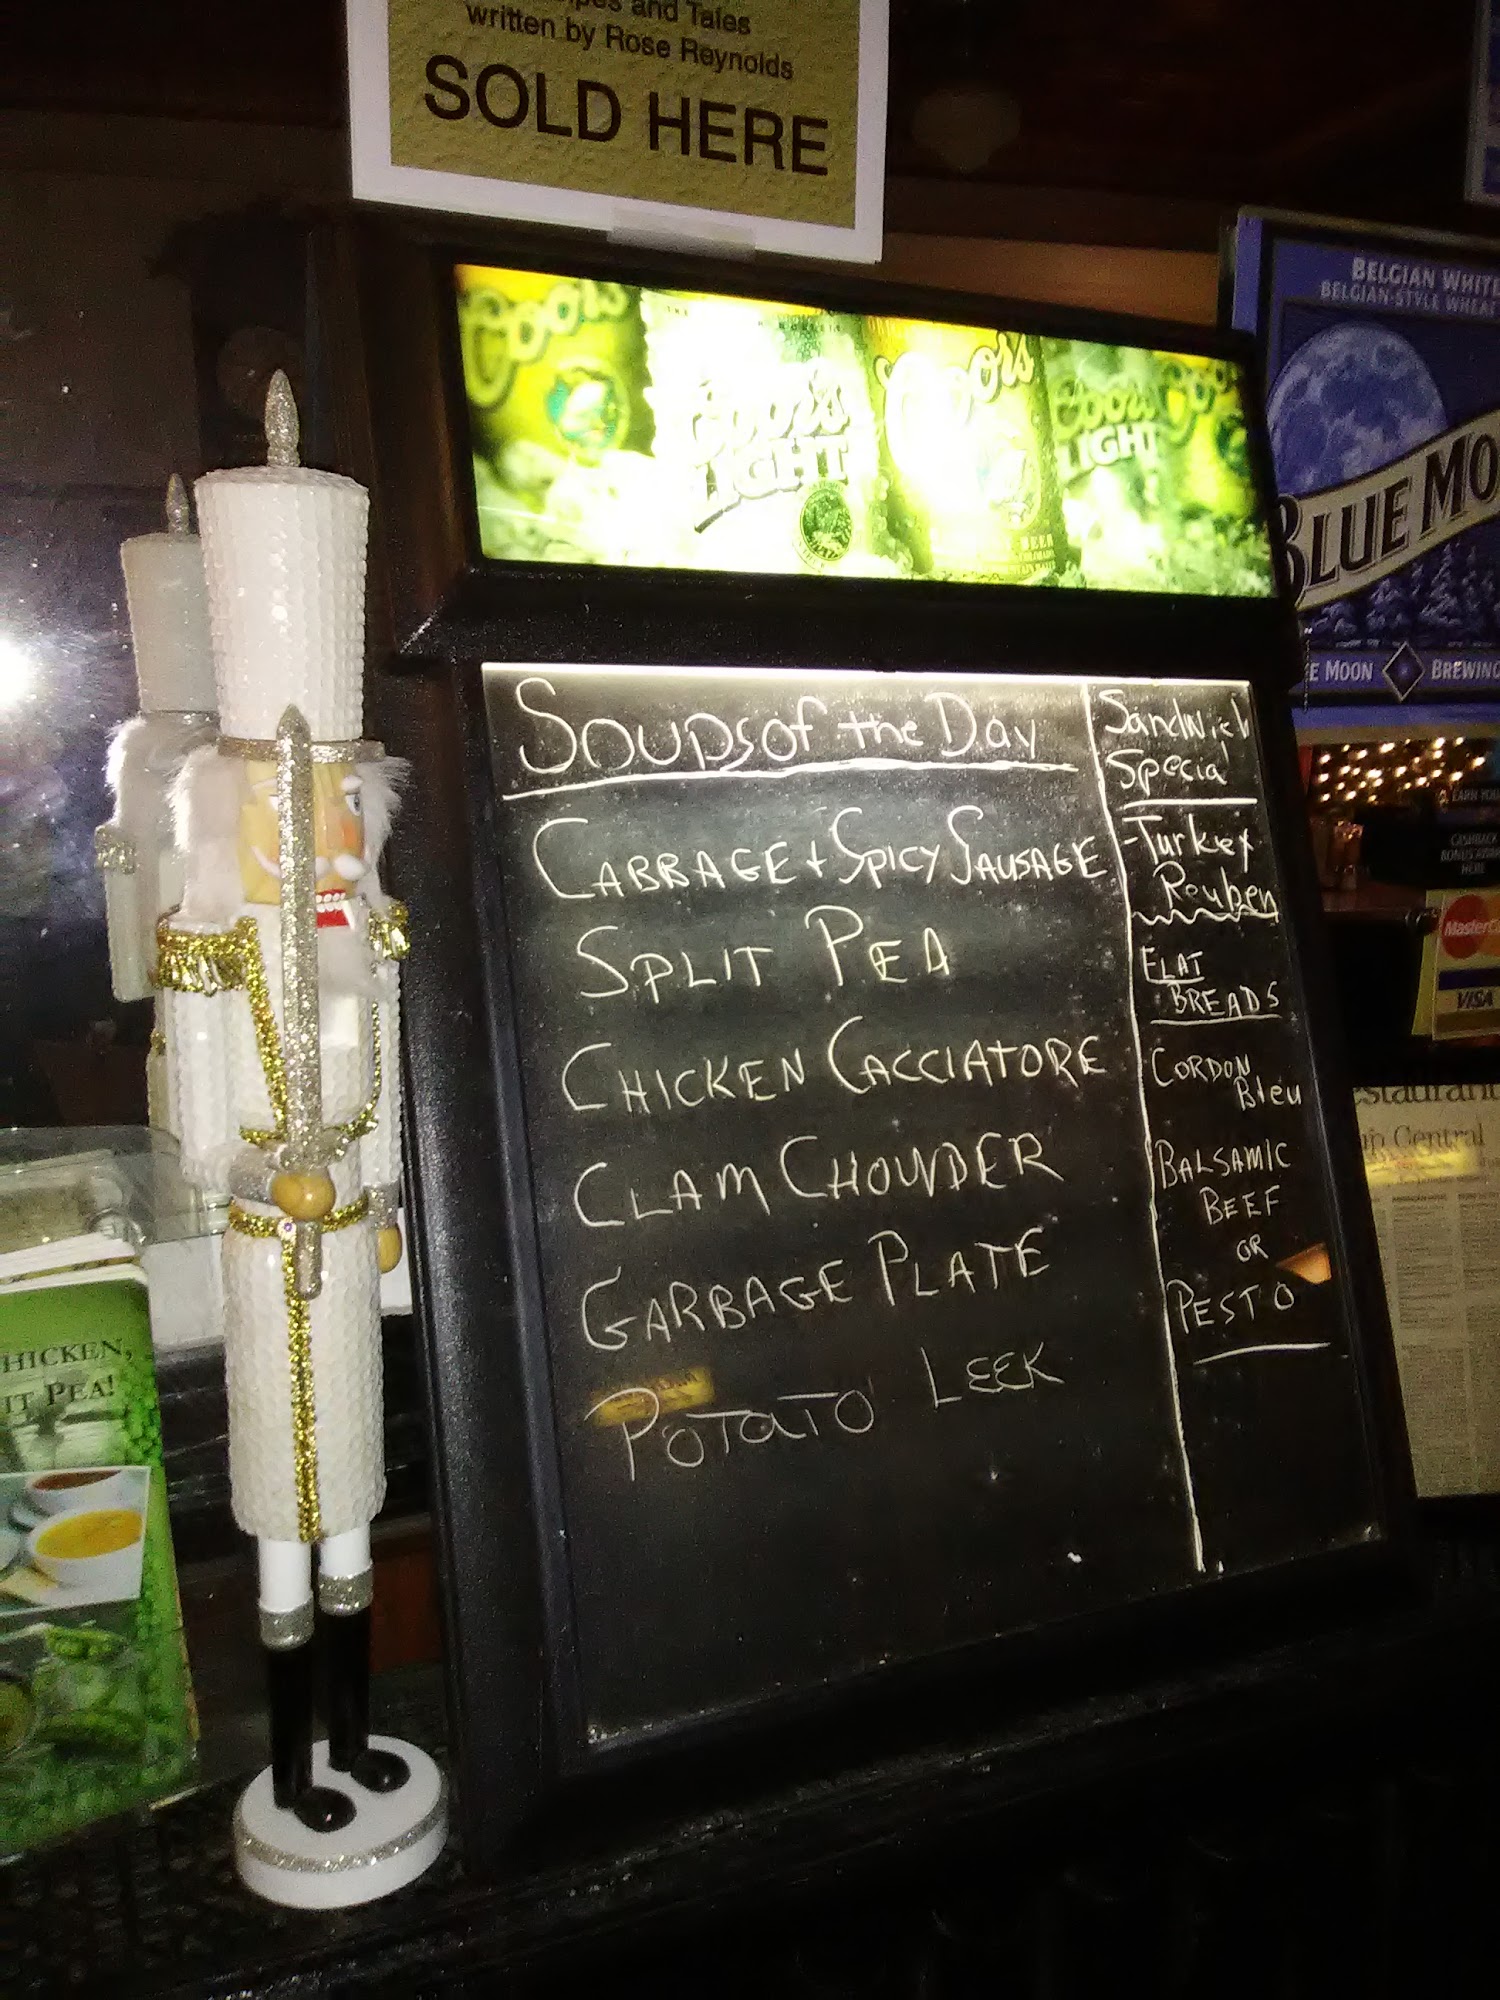 and Tales
written by Rose Reynolds
SOLD HERE
Coors
Coors
LIGHT
Coors
BEER
Coors
LIGHT
BELGIAN WHITE
BELGIAN-STYLE WHEAT
BLUE MO
E MOON BREWING
Soups of the Day
CABBAGE + SPICY SAUSAGE
SPLIT PEA
CHICKEN CACCIATORE
CLAM CHOWDER
GARBAGE PLATE
POTATO LEEK
Sandwich
Special
-Turkey
Reuben
FLAT
BREADS
CORDON
Bleu
BALSAMIC
BEEF
OR
PESTO
EARN YOU
CASHBACK
BONUS
HERE
MasterC
VISA
estaurant
Central
HICKEN,
IT PEA!